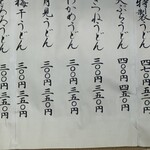 うどん 四七〇円
ぷらうどん 四〇〇円 四五〇円
つねうどん 三〇〇円 三五〇円
わかめうどん 三〇〇円 三五〇円
月見うどん 三〇〇円 三五〇円
梅干うどん 三〇〇円 三五〇円
うどん 三〇〇円 三五〇円